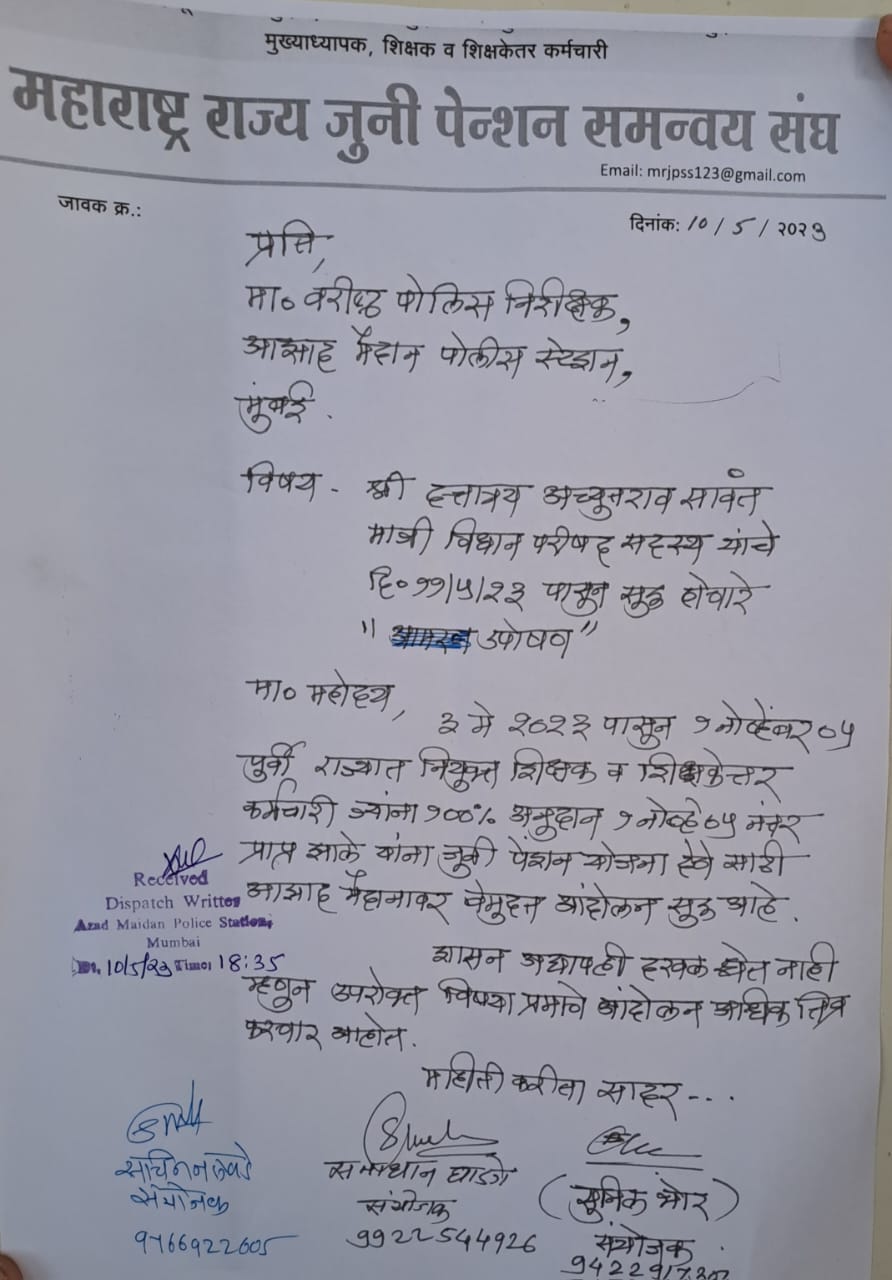 मुख्याध्यापक, शिक्षक व शिक्षकेतर कर्मचारी
महाराष्ट्र राज्य जुनी पेन्शन समन्वय संघ
Email: mrjpss123@gmail.com
जावक क्र.:
दिनांक: 10 / 5 / २०२३
प्रति,
मा० वरीष्ठ पोलिस निरीक्षक,
आझाद मैदान पोलीस स्टेशन,
मुंबई.
विषय - श्री दत्तात्रय अच्युतराव सावंत
माजी विधान परीषद सदस्य यांचे
दि० ११/५/२३ पासून सुरु होणारे
" उपोषण"
मा० महोदय,
३ मे २०२३ पासून १ नोव्हेंबर ०५
पुर्वी राज्यात नियुक्त शिक्षक व शिक्षकेत्तर
कर्मचारी ज्यांना १००% अनुदान १ नोव्हे ०५ नंतर
प्राप्त झाले यांना जुनी पेंशन योजना देणे साठी
आझाद मैदानावर बेमुदत आंदोलन सुरु आहे.
शासन अद्यापही दखल घेत नाही
म्हणुन उपरोक्त विषया प्रमाणे आंदोलन अधिक तिव्र
करणार आहोत.
माहिती करीता सादर - - .
Received
Dispatch Writter
Azad Maidan Police Station,
Mumbai
Dt. 10/5/23 Time: 18:35
सचिन
संयोजक
9766922605
समाधान घाडगे
संयोजक
9922544926
(सुनिल भोर)
संयोजक